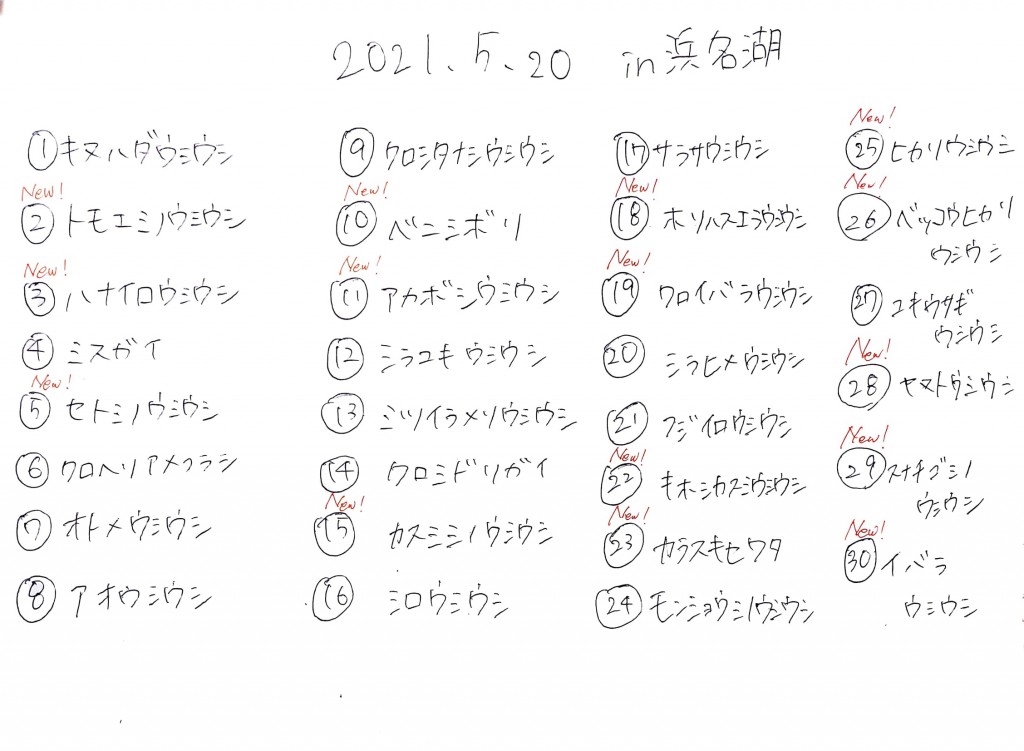 2021.5.20 in浜名湖
①キヌハダウミウシ
New!
②トモエミノウミウシ
New!
③ハナイロウミウシ
④ミスガイ
New!
⑤セトミノウミウシ
⑥クロヘリアメフラシ
⑦オトメウミウシ
⑧アオウミウシ
⑨クロシタナシウミウシ
New!
⑩ベニシボリ
New!
⑪アカボシウミウシ
⑫シラユキウミウシ
⑬ミツイラメリウミウシ
⑭クロミドリガイ
New!
⑮カスミミノウミウシ
⑯シロウミウシ
⑰サラサウミウシ
New!
⑱ホソハスエラウミウシ
New!
⑲クロイバラウミウシ
⑳シラヒメウミウシ
㉑フジイロウミウシ
New!
㉒キホシカスミウミウシ
New!
㉓カラスキセワタ
㉔モンショウミノウミウシ
New!
㉕ヒカリウミウシ
New!
㉖ベッコウヒカリ
ウミウシ
㉗ユキウサギ
ウミウシ
New!
㉘ヤマトウミウシ
New!
㉙スナチゴミノ
ウミウシ
New!
㉚イバラ
ウミウシ